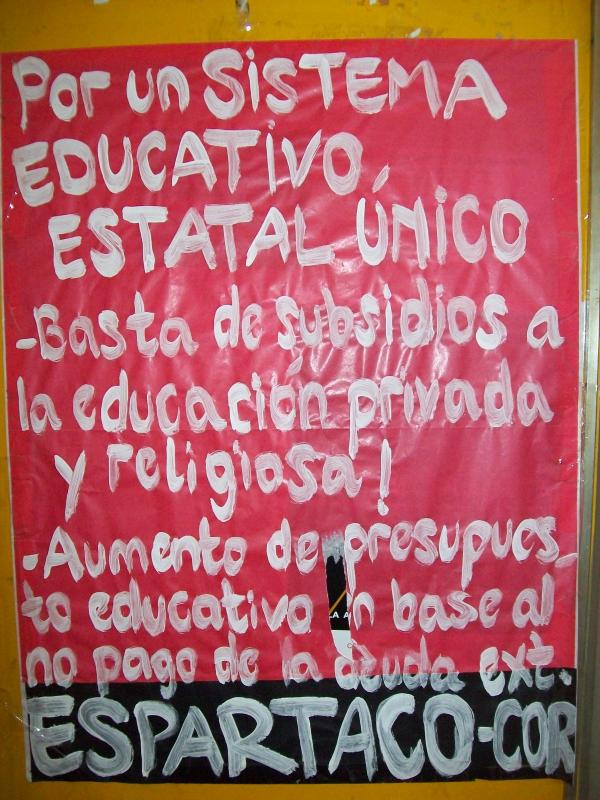 Por un SiSTEMA
EDUCATiVO
ESTATAL ÚNiCO
-Basta de subsidios a
la educación privada
y religiosa!
-Aumento de presupues_
to educativo in base al
no pago de la deuda ext.
ESPARTACO-COR